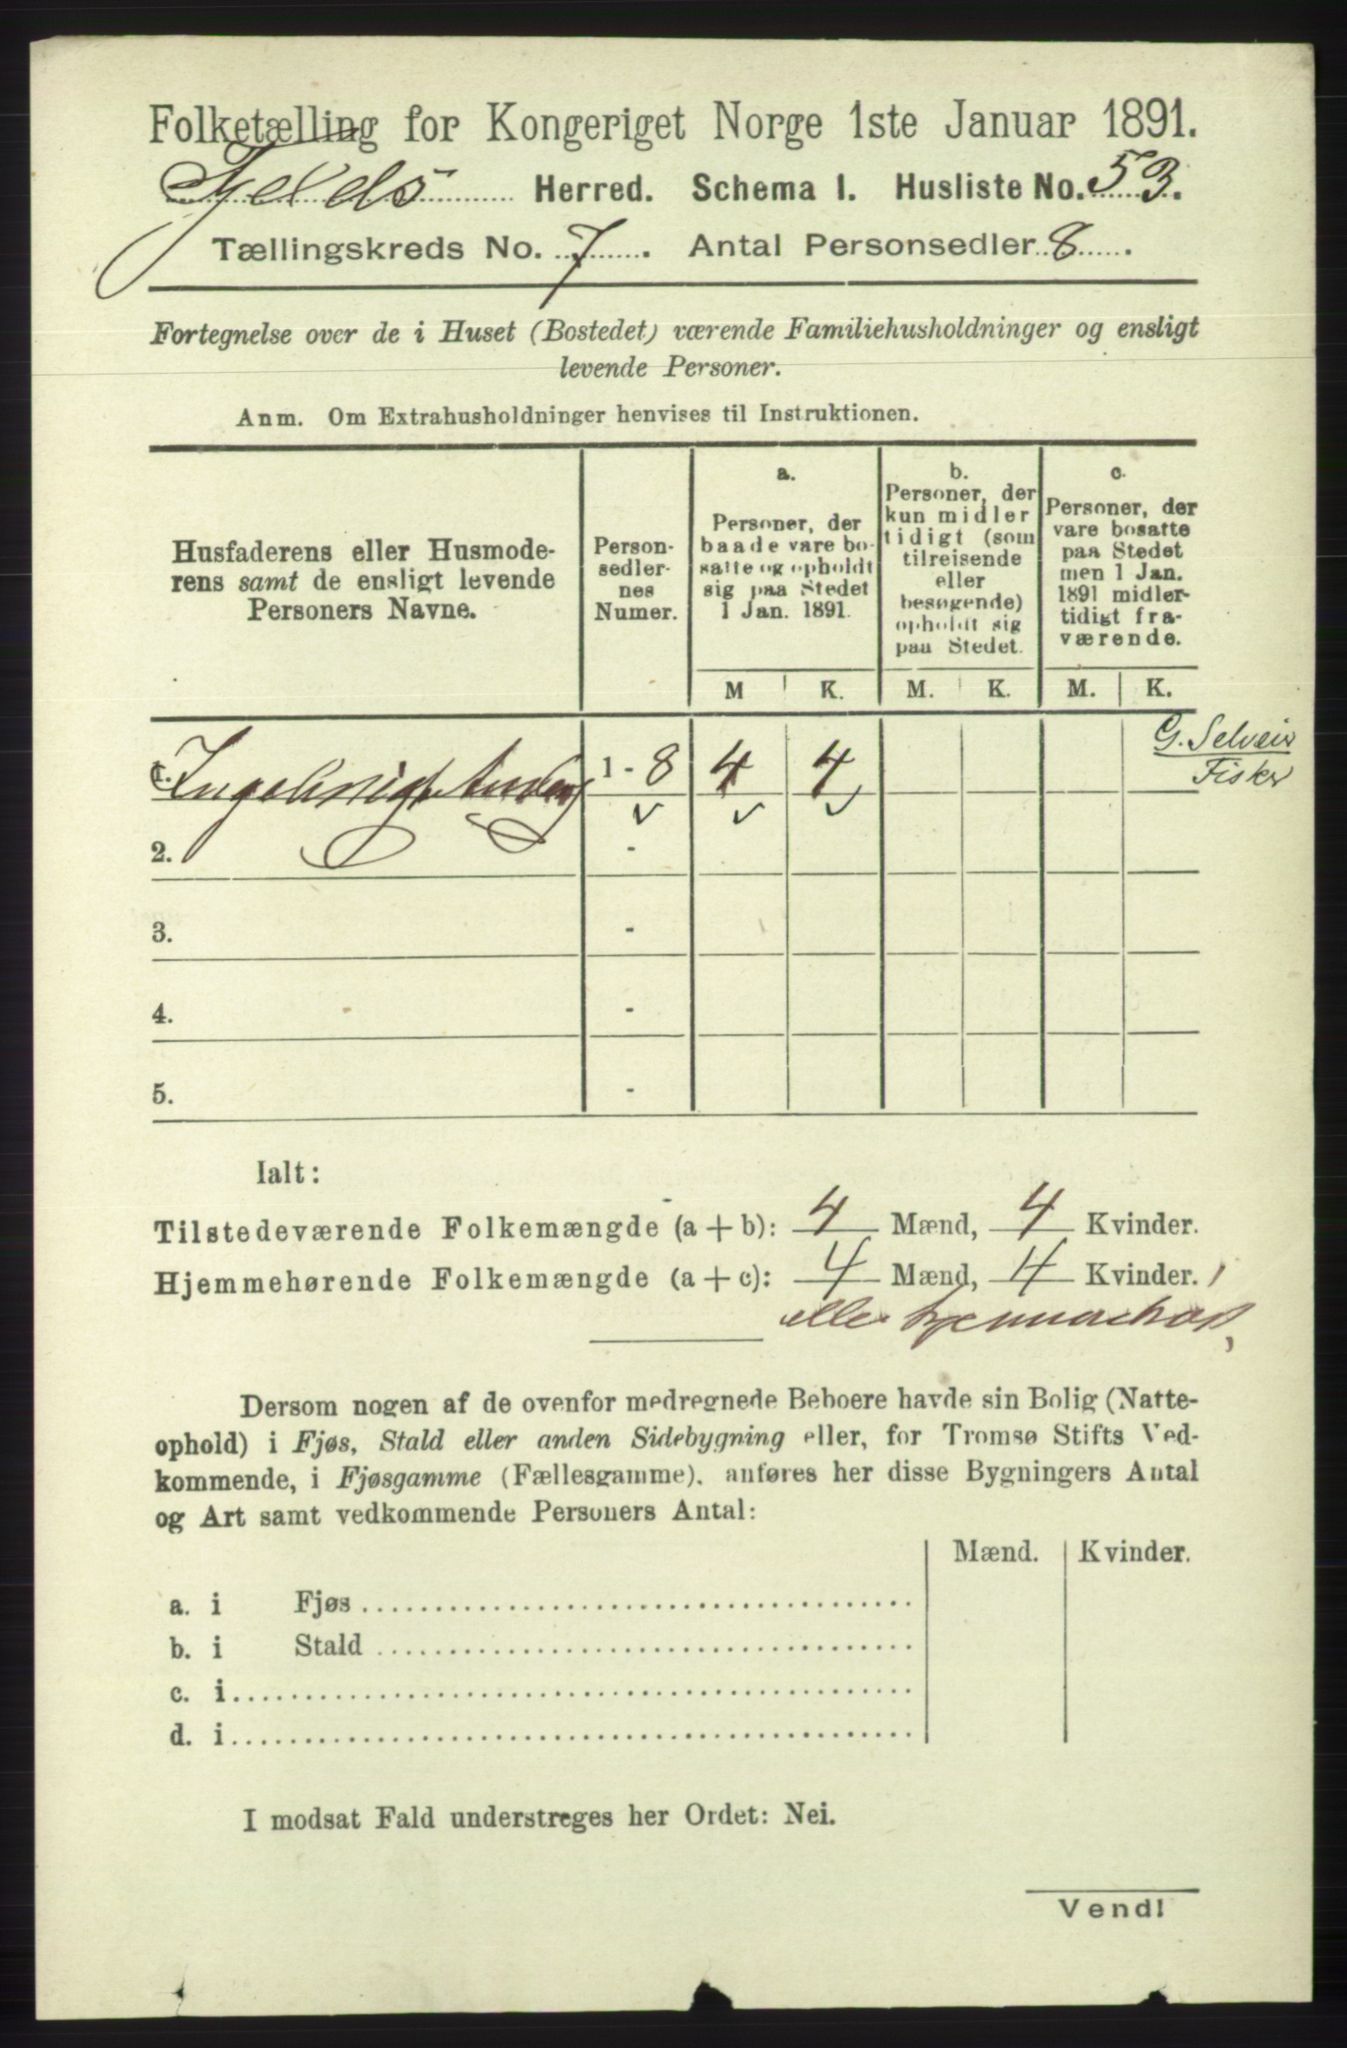 Folketælling for Kongeriget Norge 1ste Januar 1891.
Herred. Schema I. Husliste No. 53.
Tællingskreds No. 7. Antal Personsedler 8.
Fortegnelse over de i Huset (Bostedet) værende Familiehusholdninger og ensligt
levende Personer.
Anm. Om Extrahusholdninger henvises til Instruktionen.
Husfaderens eller Husmode-
rens samt de ensligt levende
Personers Navne.
Person-
sedler-
nes
Numer.
a.
Personer, der
baade vare bo-
satte og opholdt
sig paa Stedet
1 Jan. 1891.
b.
Personer, der
kun midler
tidigt (som
tilreisende
eller
besøgende)
opholdt sig
paa Stedet.
c.
Personer, der
vare bosatte
paa Stedet
men 1 Jan.
1891 midler-
tidigt fra-
værende.
M K. M. K. M. K.
G. Selveier
Fisker
1. Ingebrigt 1 - 8 4 4
2. -
3. -
4. -
5. -
Ialt:
Tilstedeværende Folkemængde (a + b): 4 Mænd, 4 Kvinder.
Hjemmehørende Folkemængde (a + c): 4 Mænd, 4 Kvinder.
Dersom nogen af de ovenfor medregnede Beboere havde sin Bolig (Natte-
ophold) i Fjøs, Stald eller anden Sidebygning eller, for Tromsø Stifts Ved-
kommende, i Fjøsgamme (Fællesgamme). anføres her disse Bygningers Antal
og Art samt vedkommende Personers Antal:
Mænd. Kvinder.
a. i Fjøs
b. i Stald
c. i
d. i
I modsat Fald understreges her Ordet: Nei.
Vend!